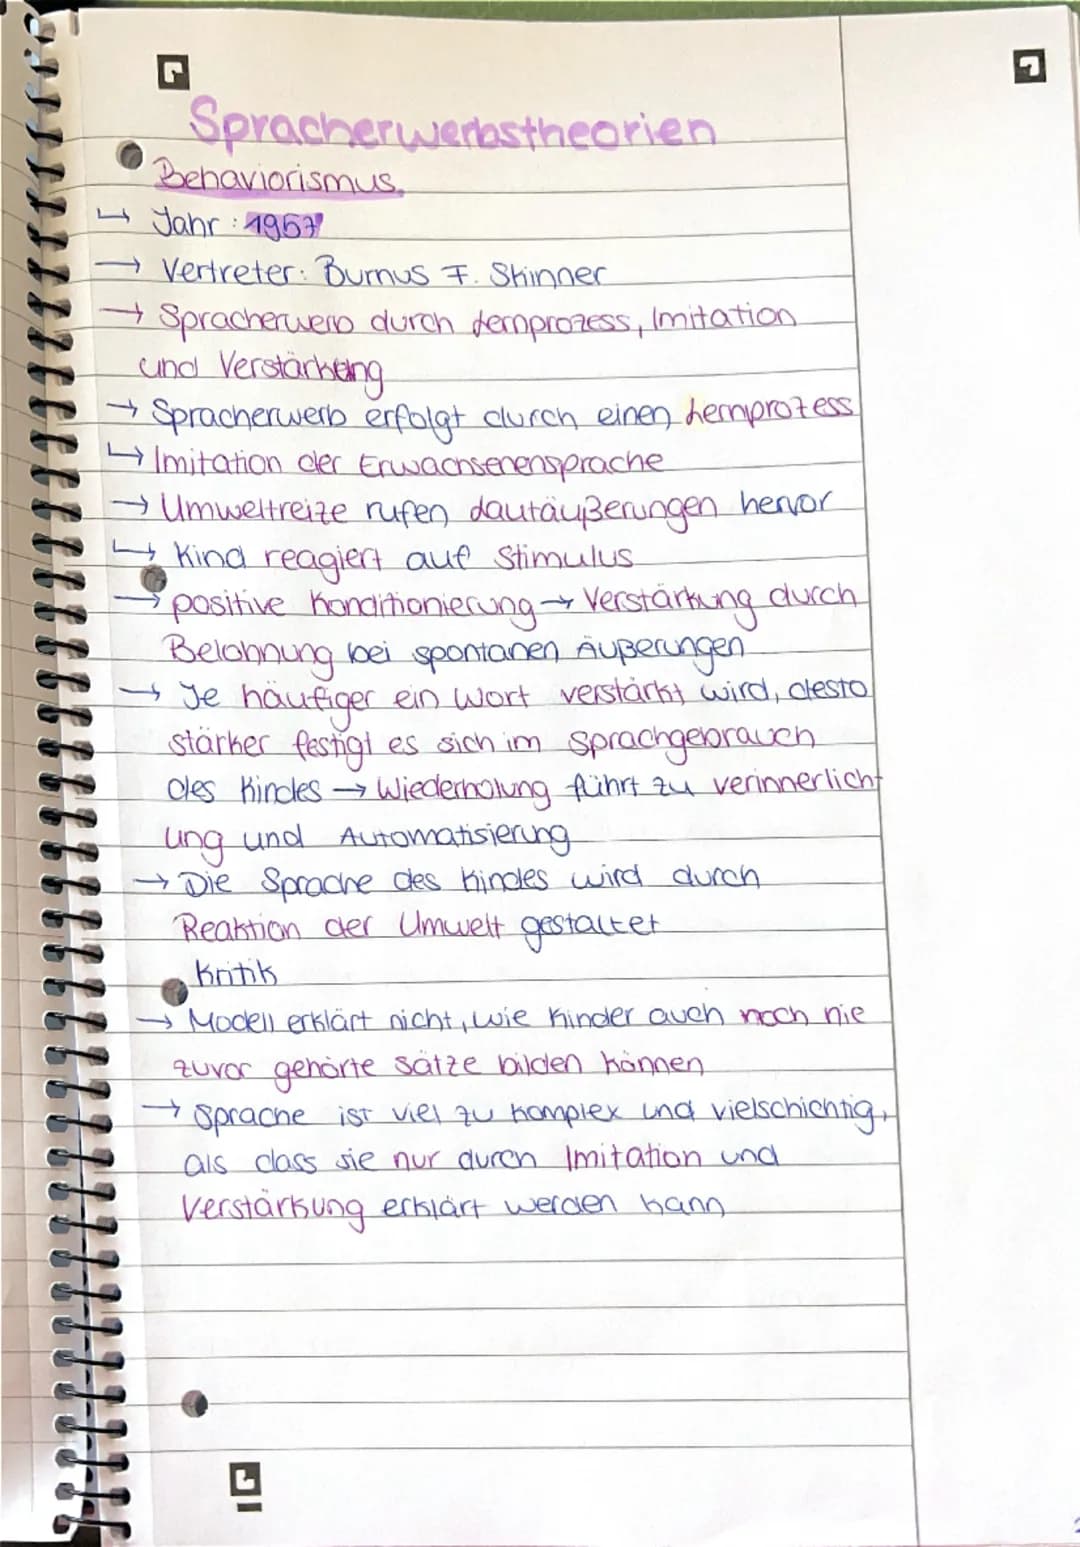 Spracherwerbstheorien
Behaviorismus
↳ Jahr: 1957
→ Vertreter: Burrhus F. Skinner
→ Spracherwerb durch Lernprozess, Imitation
und Verstärkung
→ Spracherwerb erfolgt durch einen Lernprozess
↳ Imitation der Erwachsenensprache
→ Umweltreize rufen Lautäußerungen hervor
↳ Kind reagiert auf Stimulus
→ positive Konditionierung → Verstärkung durch
Belohnung bei spontanen Äußerungen
→ Je häufiger ein Wort verstärkt wird, desto
stärker festigt es sich im Sprachgebrauch
des Kindes → Wiederholung führt zu verinnerlich
ung und Automatisierung
→ Die Sprache des Kindes wird durch
Reaktion der Umwelt gestaltet
Kritik
→ Modell erklärt nicht, wie Kinder auch noch nie
zuvor gehörte Sätze bilden können
→ Sprache ist viel zu komplex und vielschichtig,
als dass sie nur durch Imitation und
Verstärkung erklärt werden kann